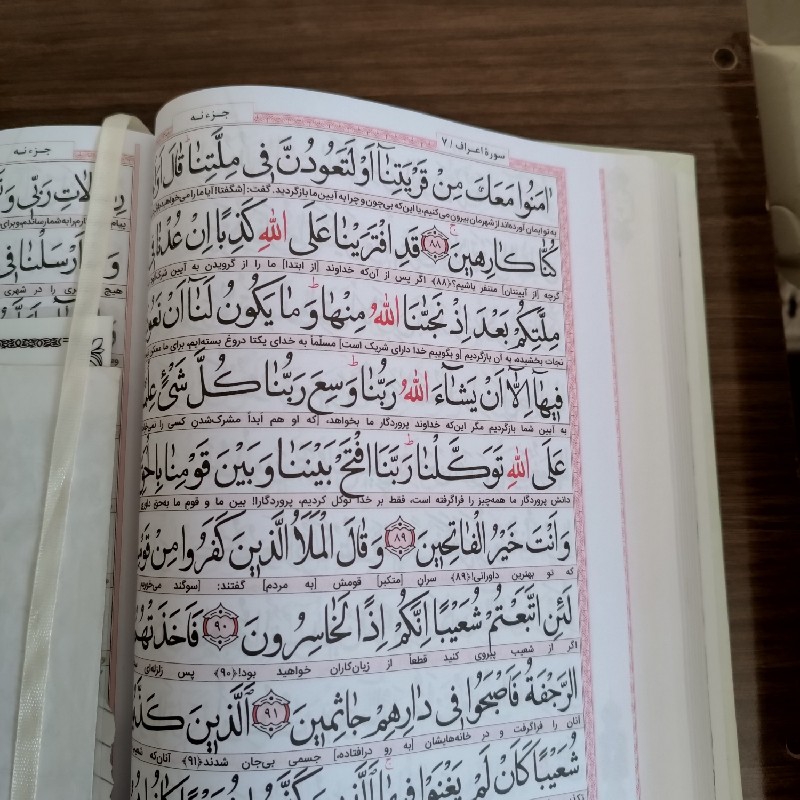 جزء نه
سورهٔ اعراف / ۷
امَنُوا مَعَكَ مِنْ قَرْيَتِنَآ اَوْ لَتَعُودُنَّ فِي مِلَّتِنَا قَالَ
به تو ایمان آورده‌اند از شهرمان بیرون می‌کنیم، یا این‌که بی‌چون و چرا به آیین ما بازگردید. گفت: [شگفتا!] آیا ما را می‌خواهید
كُنَّا كَارِهِينَ ۸۸ قَدِ افْتَرَيْنَا عَلَى اللهِ كَذِبًا اِنْ عُدْنَا
گرچه [از آیینتان] متنفر باشیم؟﴿۸۸﴾ اگر پس از آن‌که خداوند [از ابتدا] ما را از گرویدن به آیین
مِلَّتِكُمْ بَعْدَ اِذْ نَجّٰنَا اللهُ مِنْهَا وَ مَا يَكُونُ لَنَآ اَنْ
نجات بخشیده، به آن بازگردیم [و بگوییم خدا دارای شریک است] مسلماً به خدای یکتا دروغ بسته‌ایم، برای ما
فِيهَآ اِلَّآ اَنْ يَشَآءَ اللهُ رَبُّنَا وَسِعَ رَبُّنَا كُلَّ شَيْءٍ
به آیین شما بازگردیم مگر این‌که خداوند پروردگار ما بخواهد، [که او هم ابداً مشرک‌شدن کسی را
عَلَى اللهِ تَوَكَّلْنَا رَبَّنَا افْتَحْ بَيْنَنَا وَ بَيْنَ قَوْمِنَا
دانش پروردگار ما همه‌چیز را فراگرفته است، فقط بر خدا توکل کردیم، پروردگارا! بین ما و قوم ما به‌حق
وَ اَنْتَ خَيْرُ الْفَاتِحِينَ ۸۹ وَ قَالَ الْمَلَاُ الَّذِينَ كَفَرُوا مِنْ
که تو بهترین داورانی!﴿۸۹﴾ سران [متکبر] قومش [به مردم] گفتند: [سوگند
لَئِنِ اتَّبَعْتُمْ شُعَيْبًا اِنَّكُمْ اِذًا لَخَاسِرُونَ ۹۰ فَاَخَذَتْهُمُ
اگر از شعیب پیروی کنید قطعاً از زیان‌کاران خواهید بود!﴿۹۰﴾ پس زلزله‌ای
الرَّجْفَةُ فَاَصْبَحُوا فِي دَارِهِمْ جَاثِمِينَ ۹۱ اَلَّذِينَ
آنان را فراگرفت و در خانه‌هایشان [به رو درافتاده،] جسمی بی‌جان شدند﴿۹۱﴾ آنان‌که
شُعَيْبًا كَاَنْ لَمْ يَغْنَوْا فِيهَا اَلَّذِينَ
جزء نه